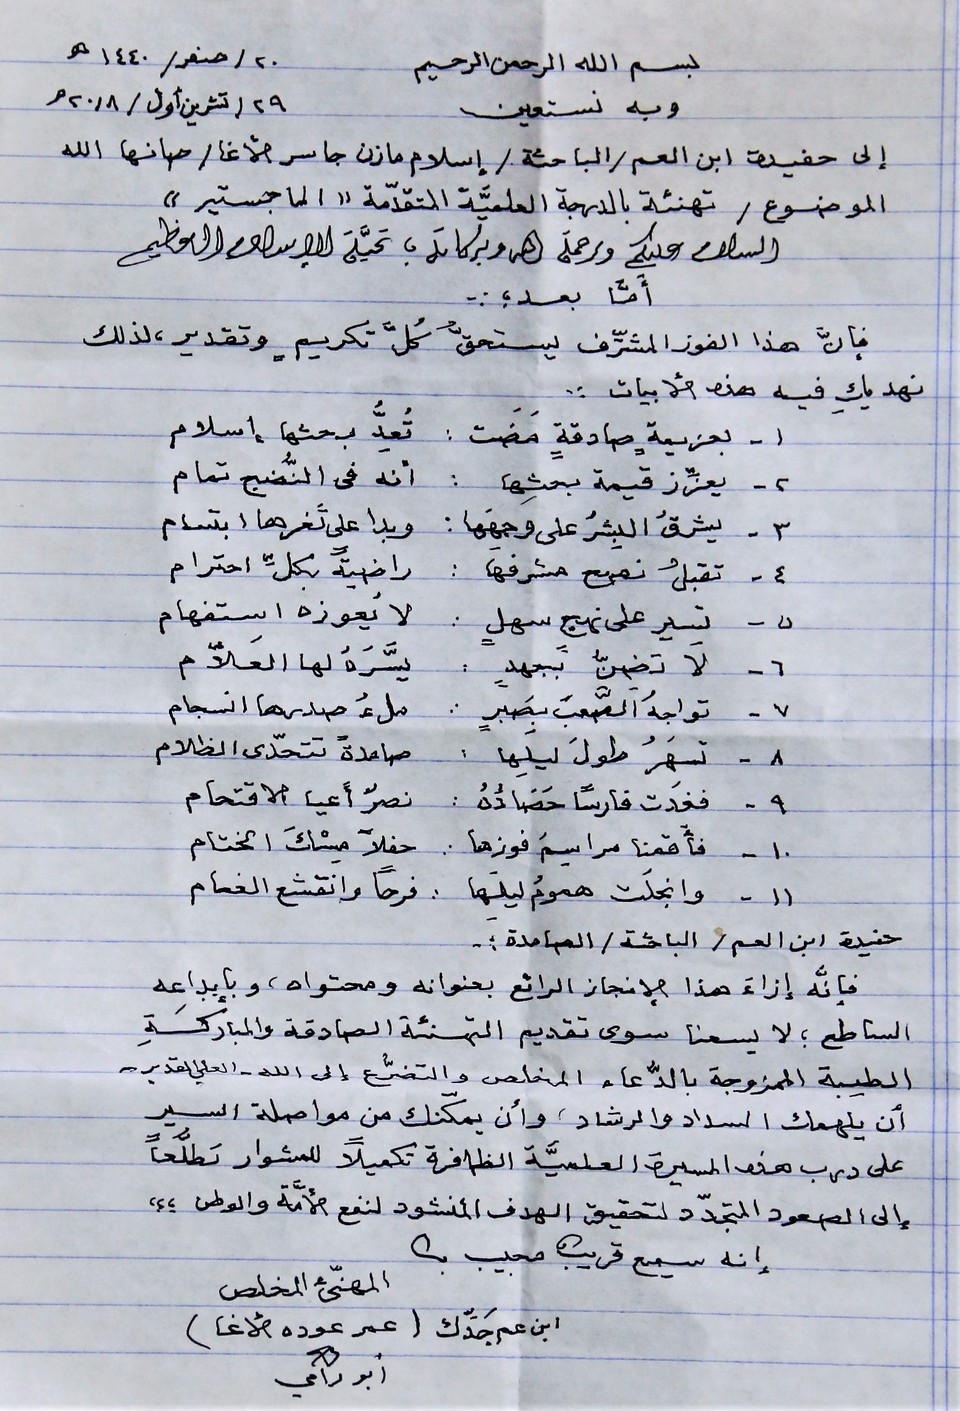 بسم الله الرحمن الرحيم ٢٠/صفر/١٤٤٠هـ
وبه نستعين ٢٩/تشرين أول/٢٠١٨م
إلى حفيدة ابن العم/الباحثة/إسلام مازن جاسر الأغا/صانها الله
الموضوع/ تهنئة بالدرجة العلميَّة المتقدّمة "الماجستير"
السلام عليكم ورحمة الله وبركاته، تحيَّة الإسلام العظيم
أمَّا بعد؛:-
فإنَّ هذا الفوز المشرّف ليستحقُّ كُلَّ تكريمٍ وتقدير، لذلك
نهديكِ فيه هذه الأبيات :-
١- بعزيمةٍ صادقةٍ مَضَت : تُعِدُّ بحثها إسلام
٢- يعزّز قيمة بحثِها : أنه في النُّضج تمام
٣- يشرقُ البِشرُ على وجهِها : وبدا على ثَغرها ابتسام
٤- تقبلُ نصح مشرفها : راضيةً بكلِّ احترام
٥- تسير على نهجٍ سهلٍ : لا يُعوزه استفهام
٦- لا تَضِنُّ بجهدٍ : يسَّرَهُ لها العَلاَّم
٧- تواجهُ الصَّعبَ بِصَبرٍ : ملءُ صدرها انسجام
٨- تسهَرُ طولَ ليلِها : صامدةً تتحدّى الظلام
٩- فغدَت فارسًا حَصَادُهُ : نصرٌ أعيا الاقتحام
١٠- فأقمنا مراسيمَ فوزها : حفلاً مِسْكَ الختام
١١- وانجلَت همومُ ليلِها : فرحًا وانقشع الغمام
حفيدة ابن العم/ الباحثة/الصامدة؛-
فإنَّه إزاءَ هذا الإنجاز الرائع بعنوانه ومحتواه، وبإبداعِه
الساطع؛ لا يسعنا سوى تقديم التهنئة الصادقة والمباركَةِ
الطيبة الممزوجة بالدُّعاء المخلص والتضرُّع إلى الله - العلي القدير -
أن يلهمك السداد والرشاد، وأن يمكّنك من مواصلة السير
على درب هذه المسيرة العلميَّة الظافرة تكميلاً للمشوار تَطلُّعاً
إلى الصعود المتجدّد لتحقيق الهدف المنشود لنفع الأمَّة والوطن ،،
إنه سميع قريب مجيب
المهنّئ المخلص
ابن عم جَدّك (عمر عوده الأغا)
أبو رامي